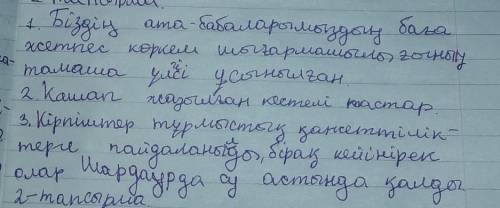 1. Біздің ата-бабаларымыздың баға
жетпес көркем шығармашылығының
тамаша үлгі ұсынылған.
2. Қашап жазылған кестелі тастар.
3. Кірпіштер тұрмыстық қажеттілік-
терге пайдаланыды, бірақ кейінірек
олар Шардаұрда су астында қалды
2-тапсырма